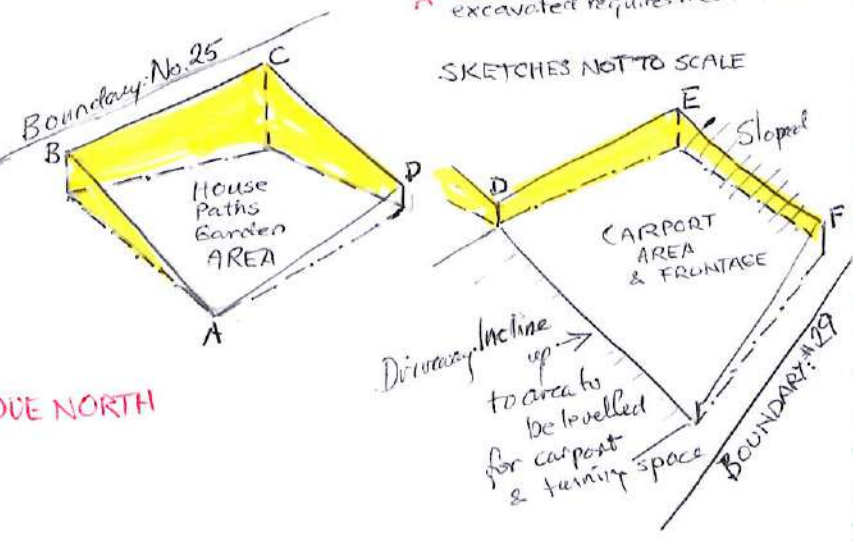 excavated requires
SKETCHES NOT TO SCALE
Boundary: No. 25
C
B
D
House
Paths
Garden
AREA
A
E
Sloped
D
F
CARPORT
AREA
& FRONTAGE
Driveway. Incline
up
to area to
be levelled
for carport
& turning space
BOUNDARY: #29
DUE NORTH